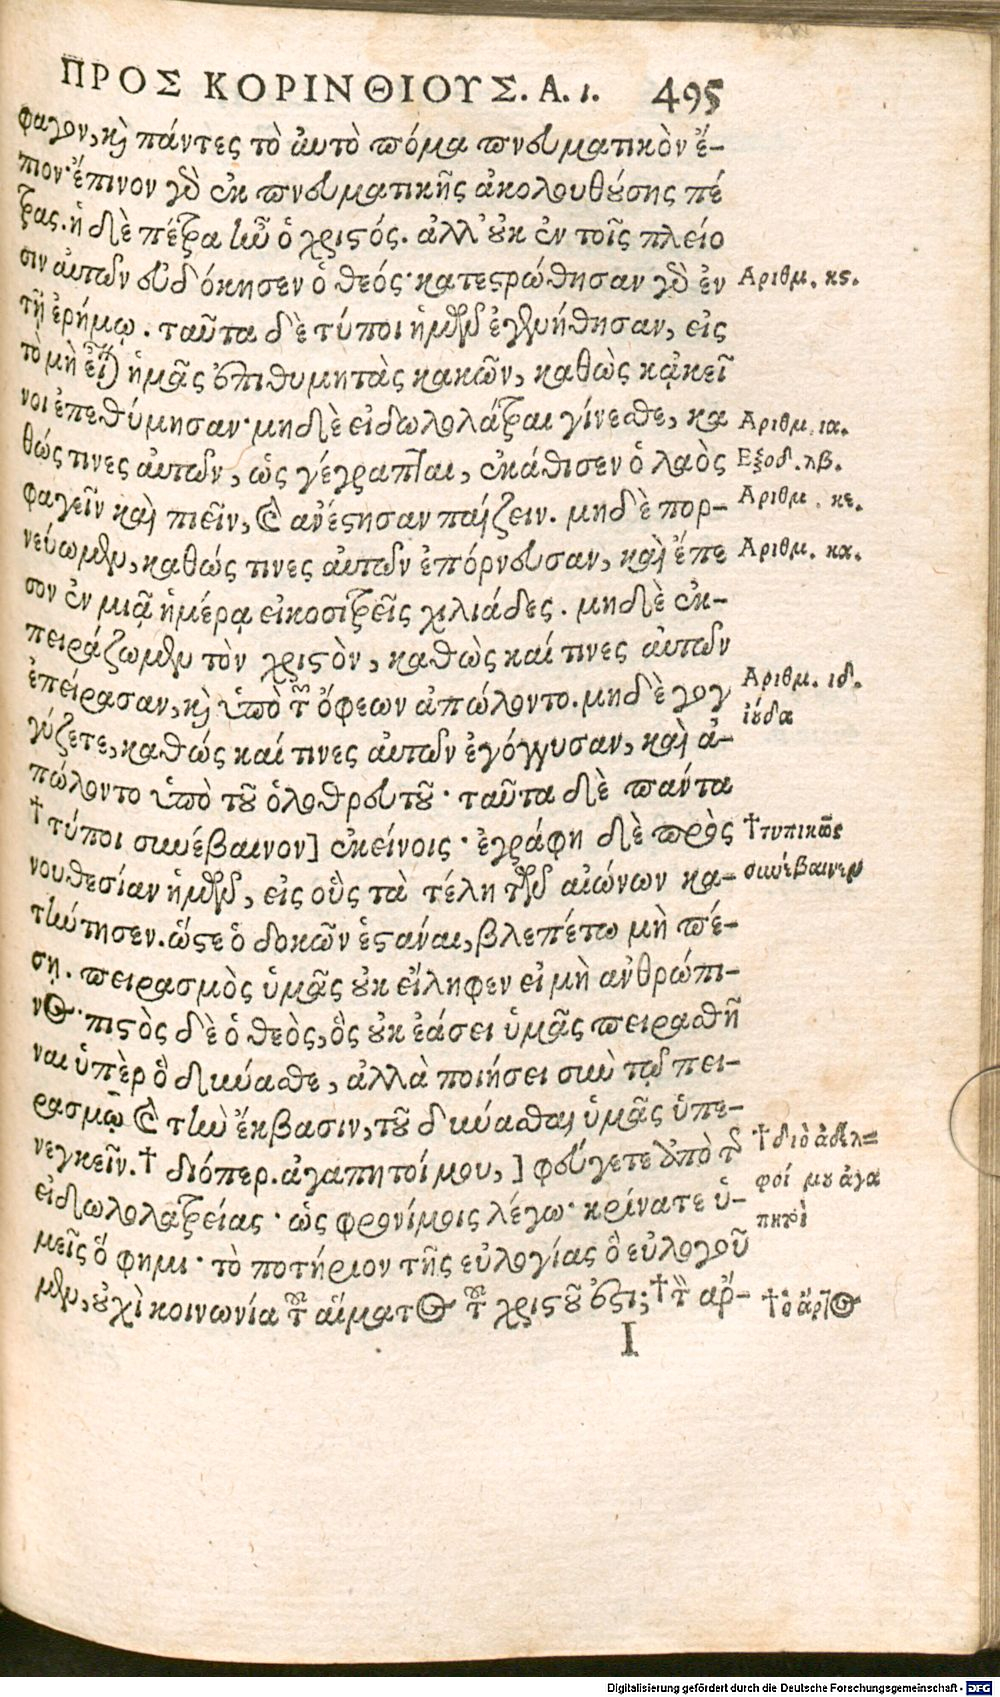 ΠΡΟΣ ΚΟΡΙΝΘΙΟΥΣ. Α. ι. 495
φαγον, κὶ πάντες τὸ αὐτὸ πόμα πνευματικὸν ἔ-
πιον· ἔπινον γὸ ἐκ πνευματικῆς ἀκολουθούσης πέ
τρας. ἡ δὲ πέτρα ἦν ὁ χριστός. ἀλλ' οὐκ ἐν τοῖς πλείο
σιν αὐτῶν εὐδόκησεν ὁ θεός· κατεστρώθησαν γὸ ἐν
Αριθμ. κϛ.
τῇ ἐρήμῳ. ταῦτα δὲ τύποι ἡμῶν ἐγενήθησαν, εἰς
τὸ μὴ εἶναι ἡμᾶς ἐπιθυμητὰς κακῶν, καθὼς κᾀκεῖ
νοι ἐπεθύμησαν· μηδὲ εἰδωλολάτραι γίνεσθε, κα
Αριθμ. ια.
θώς τινες αὐτῶν, ὡς γέγραπται, ἐκάθισεν ὁ λαὸς
Εξοδ. λβ.
φαγεῖν καὶ πιεῖν, καὶ ἀνέστησαν παίζειν. μηδὲ πορ-
Αριθμ. κε.
νεύωμεν, καθώς τινες αὐτῶν ἐπόρνευσαν, καὶ ἔπε
Αριθμ. κα.
σον ἐν μιᾷ ἡμέρᾳ εἰκοσιτρεῖς χιλιάδες. μηδὲ ἐκ-
πειράζωμεν τὸν χριστὸν, καθὼς καί τινες αὐτῶν
ἐπείρασαν, κὶ ὑπὸ τῶν ὄφεων ἀπώλοντο. μηδὲ γογ
Αριθμ. ιδ.
ἰούδα
γύζετε, καθώς καί τινες αὐτῶν ἐγόγγυσαν, καὶ ἀ-
πώλοντο ὑπὸ τοῦ ὀλοθρευτοῦ· ταῦτα δὲ πάντα
†τύποι συνέβαινον] ἐκείνοις· ἐγράφη δὲ πρὸς
†τυπικῶς
συνέβαινεν
νουθεσίαν ἡμῶν, εἰς οὓς τὰ τέλη τῶν αἰώνων κα-
τήντησεν. ὥστε ὁ δοκῶν ἑστάναι, βλεπέτω μὴ πέ-
σῃ. πειρασμὸς ὑμᾶς οὐκ εἴληφεν εἰ μὴ ἀνθρώπι-
νος· πιστὸς δὲ ὁ θεὸς, ὃς οὐκ ἐάσει ὑμᾶς πειρασθῆ
ναι ὑπὲρ ὃ δύνασθε, ἀλλὰ ποιήσει σὺν τῷ πει-
ρασμῷ καὶ τὴν ἔκβασιν, τοῦ δύνασθαι ὑμᾶς ὑπε-
νεγκεῖν. † διόπερ. ἀγαπητοί μου, ] φεύγετε ἀπὸ τῆς
†διὸ ἀδελ=
φοί μου ἀγα
πητοὶ
εἰδωλολατρείας· ὡς φρονίμοις λέγω· κρίνατε ὑ-
μεῖς ὅ φημι· τὸ ποτήριον τῆς εὐλογίας ὃ εὐλογοῦ
μεν, οὐχὶ κοινωνία τοῦ αἵματος τοῦ χριστοῦ ἐστι; †τὸν ἄρ-
†ὁ ἄρτος
I
Digitalisierung gefördert durch die Deutsche Forschungsgemeinschaft - DFG